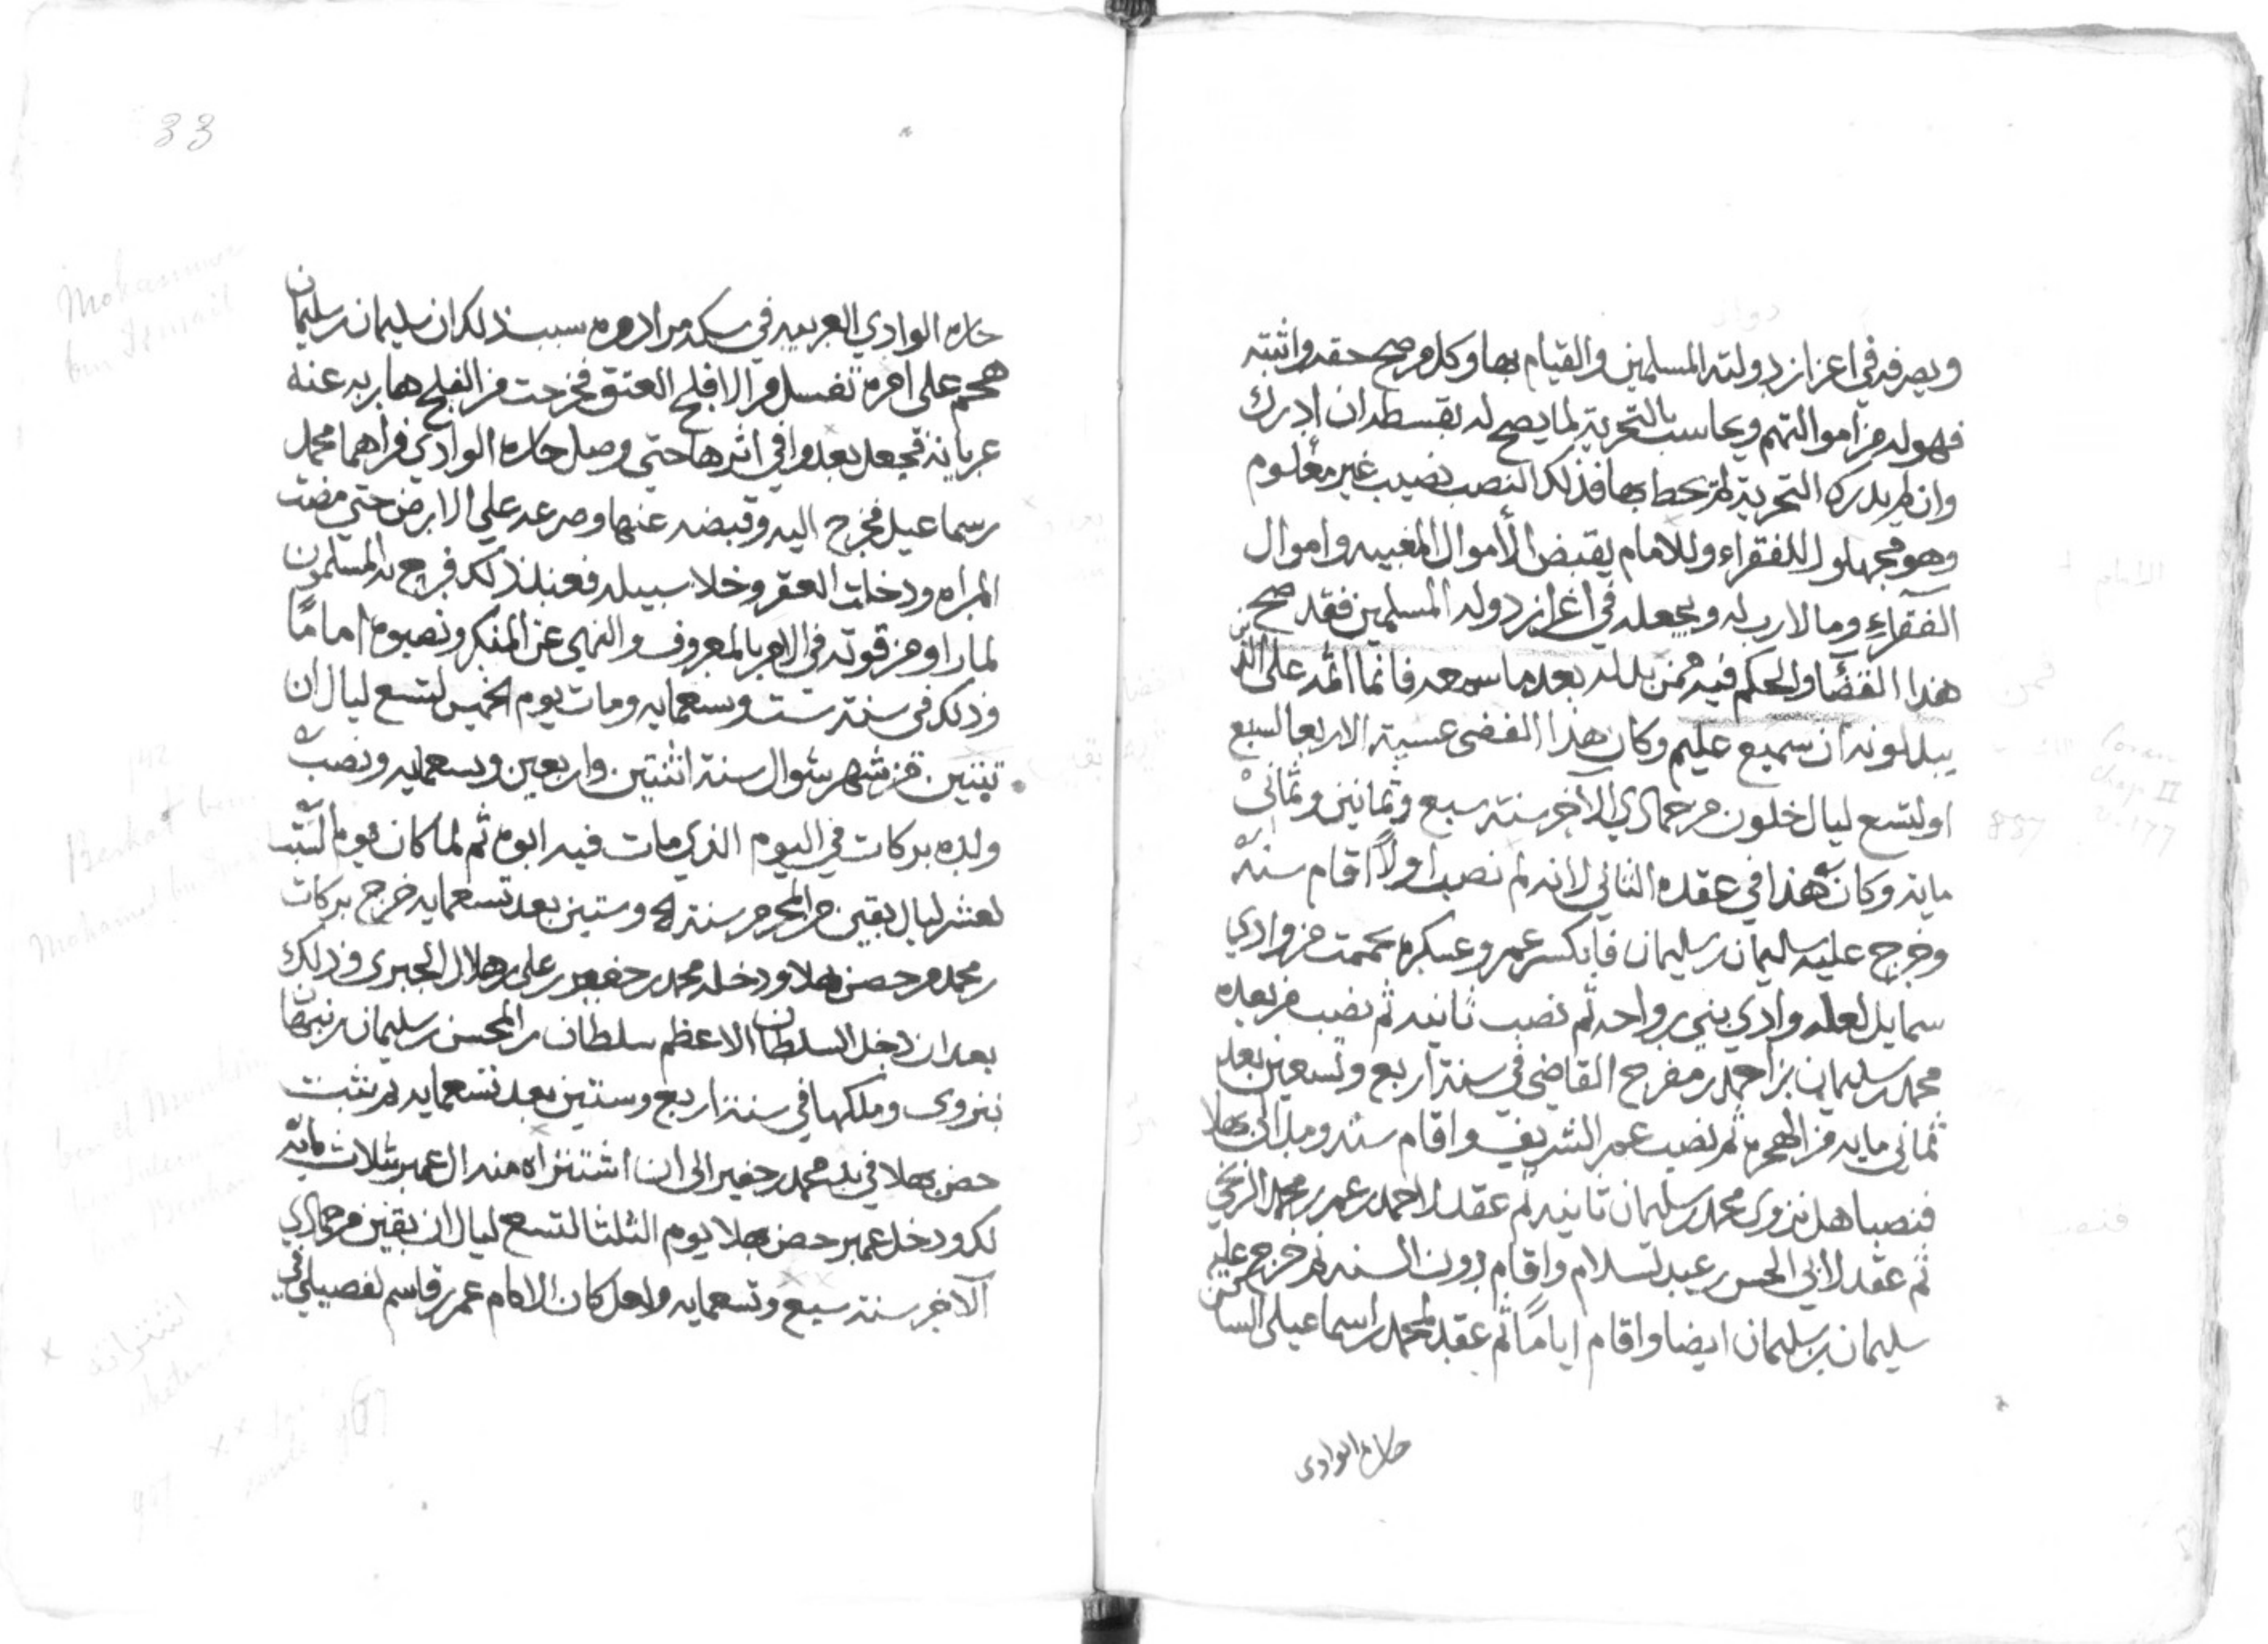 ويصرفه في اعزاز دولته المسلمين والقيام بها وكل من صح حقه واثبته
فهو له من اموالتهم ويحاسب بالتحرية لما يصح له بقسطه ان ادرك
وان لم يدرك التحرية لم يحط بها فذلك النصب نصيب غير معلوم
وهو مجهلول للفقراء وللامام يقبض الأموال المغيبه واموال
الفقراء وما لا رب له ويجعله في اعزاز دوله المسلمين فقد صح
هذا القضا والحكم فيه فمن بدله بعد ما سمعه فانما اثمه على الذين
يبدلونه ان سميع عليم وكان هذا القضى عسية الاربعا لسبع
او لتسع ليال خلون من جمادي الآخر سنة سبع وثمانين وثماني
ماية وكان هذا في عقده الثاني لانه لم نصب اولاً اقام سنة
وخرج عليه سليمان بن سليمان فانكسر عمر وعسكره بحممت من وادي
سمايل لعله وادي بني رواحه ثم نصب ثانيه ثم نصب من بعده
محمد بن سليمان بن احمد بن مفرج القاضي في سنة اربع وتسعين بعد
ثماني مايه من الهجره ثم نصب عمر الشريف واقام سنه ومبد الى بهلا
فنصب اهل نزوى محمد بن سليمان ثانيه ثم عقد لاحمد بن عمر بن محمد الزنجي
ثم عقد لابي الحسن بن عبد لسلام واقام دون السنه ثم خرج عليه
سليمان بن سليمان ايضا واقام اياماً ثم عقد لمحمد بن اسماعيل الساكن
حاره الوادي
33
حاره الوادي الغربيه في سكه مرادره بسبب ذلك ان سليمان بن سليمان
هجم على امره تغسل من الافلج العتق فخرجت من الفلج هاربه عنه
عريانه فجعل يعدوا في اثرها حتى وصل حاره الوادي فراهما محمد
بن سماعيل فخرج اليه وقبضه عنها وصرعه على الارض حتى مضت
المراه ودخلت العقر وخلا سبيله فعند ذلك فرح به المسلمون
لما راو من قوته في الامر بالمعروف والنهي عن المنكر ونصبوه اماماً
وذلك في سنة ست وتسعمايه ومات يوم الخميس لتسع ليال ان
بقين من شهر شوال سنة اثنتين واربعين وتسعمايه ونصب
ولده بركات في اليوم الذي مات فيه ابوه ثم لما كان يوم السبت
لعشر ليال بقين من المحرم سنة وستين بعد تسعمايه خرج بركات
بن محمد من حصن بهلا ودخله محمد بن جفير بن علي بن هلال الجبري وذلك
بعد ان دخل السلطان الاعظم سلطان بن المحسن بن سليمان بن نبهان
نزوى وملكها في سنة اربع وستين بعد تسعمايه ثم ثبت
حصن بهلا في يد محمد بن جفير الى ان اشتزاه منه ال عمير بثلاث مائه
لك ودخل عمير حصن بهلا يوم الثلثا لتسع ليال ان بقين من جمادي
الآخر سنة سبع وتسعمايه ولعل كان الامام عمر بن قاسم لفصيلي في
Berkat
Coran
chap II
v. 177
887
967